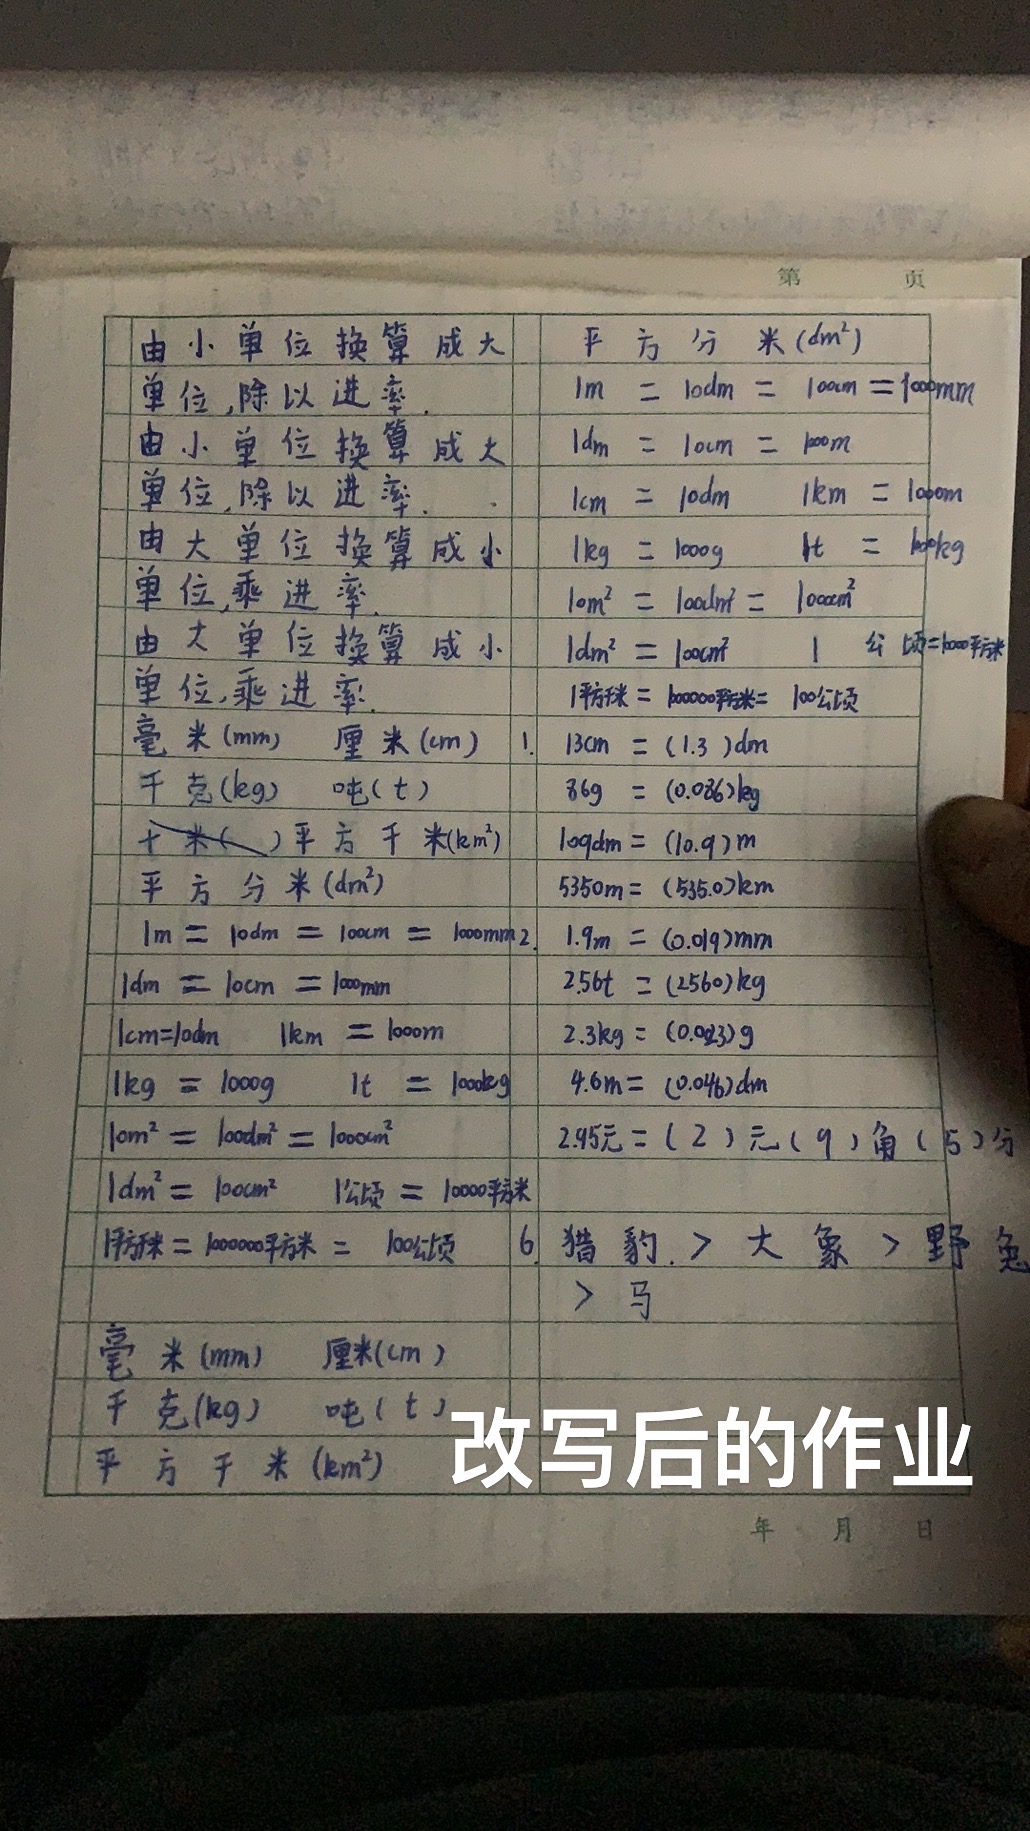 第 页
由小单位换算成大
单位,除以进率.
由小单位换算成大
单位,除以进率.
由大单位换算成小
单位,乘进率.
由大单位换算成小
单位,乘进率.
毫米(mm) 厘米(cm)
千克(kg) 吨(t)
平方千米(km²)
平方分米(dm²)
1m = 10dm = 100cm = 1000mm
1dm = 10cm = 100mm
1cm=10dm 1km = 1000m
1kg = 1000g 1t = 1000kg
10m² = 100dm² = 1000cm²
1dm² = 100cm² 1公顷 = 10000平方米
1平方千米 = 1000000平方米 = 100公顷
毫米(mm) 厘米(cm)
千克(kg) 吨(t)
平方千米(km²)
平方分米(dm²)
1m = 10dm = 100cm = 1000mm
1dm = 10cm = 100m
1cm = 10dm 1km = 1000m
1kg = 1000g 1t = 1000kg
10m² = 100dm² = 1000cm²
1dm² = 100cm² 1公顷=10000平方米
1平方千米 = 1000000平方米= 100公顷
1. 13cm = (1.3)dm
86g = (0.086)kg
109dm = (10.9)m
5350m = (535.0)km
2. 1.9m = (0.019)mm
2.56t = (2560)kg
2.3kg = (0.023)g
4.6m = (0.046)dm
2.95元 = (2)元(9)角(5)分
6. 猎豹.>大象>野兔
>马
改写后的作业
年 月 日